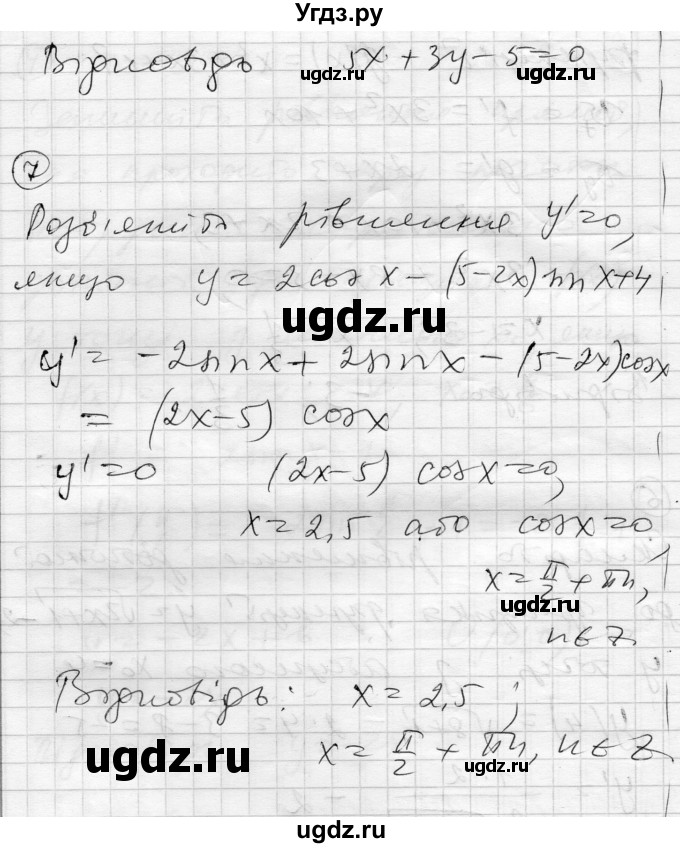 Угдз.ру
Відповідь 5x + 3y - 5 = 0
udgz.ru
udgz.ru
7
Розв'яжіть рівняння y' = 0,
якщо y = 2cos x - (5-2x) sin x + 4
udgz.ru
y' = -2sin x + 2sin x - (5-2x) cos x
= (2x-5) cos x
y' = 0 (2x-5) cos x = 0,
x = 2,5 або cos x = 0
x = π/2 + πn,
udgz.ru
n ∈ Z
Відповідь: x = 2,5 ;
x = π/2 + πn, n ∈ Z
udgz.ru
udgz.ru